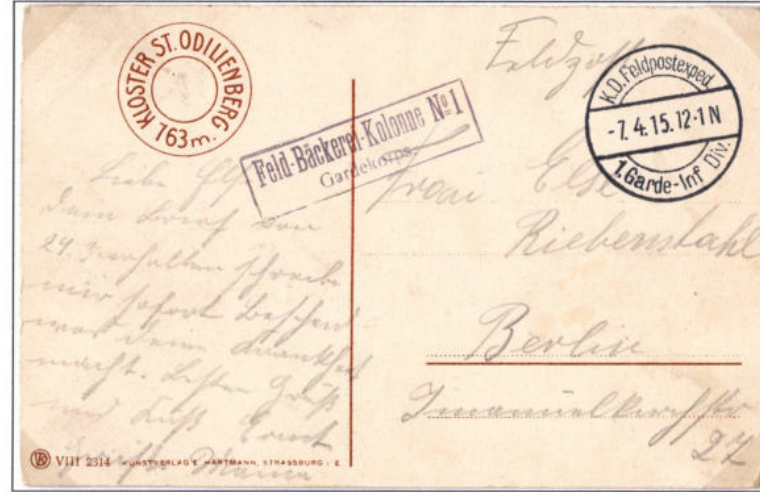 KLOSTER ST. ODILIENBERG
763 m.
Feld-Bäckerei-Kolonne No. 1
Gardekorps.
Feldpost
K.D. Feldpostexped.
-7. 4. 15. 12-1 N
1. Garde-Inf Div.
Frau Else
Riebenstahl
Berlin
Immanuelkirchstr
27
Liebe Else
dein Brief von
24.3 erhalten schreibe
mir sofort Bescheid
was deine Krankheit
macht. Besten Gruß
und Kuß Ernst
VIII 2314 KUNSTVERLAG E. HARTMANN, STRASSBURG i. E